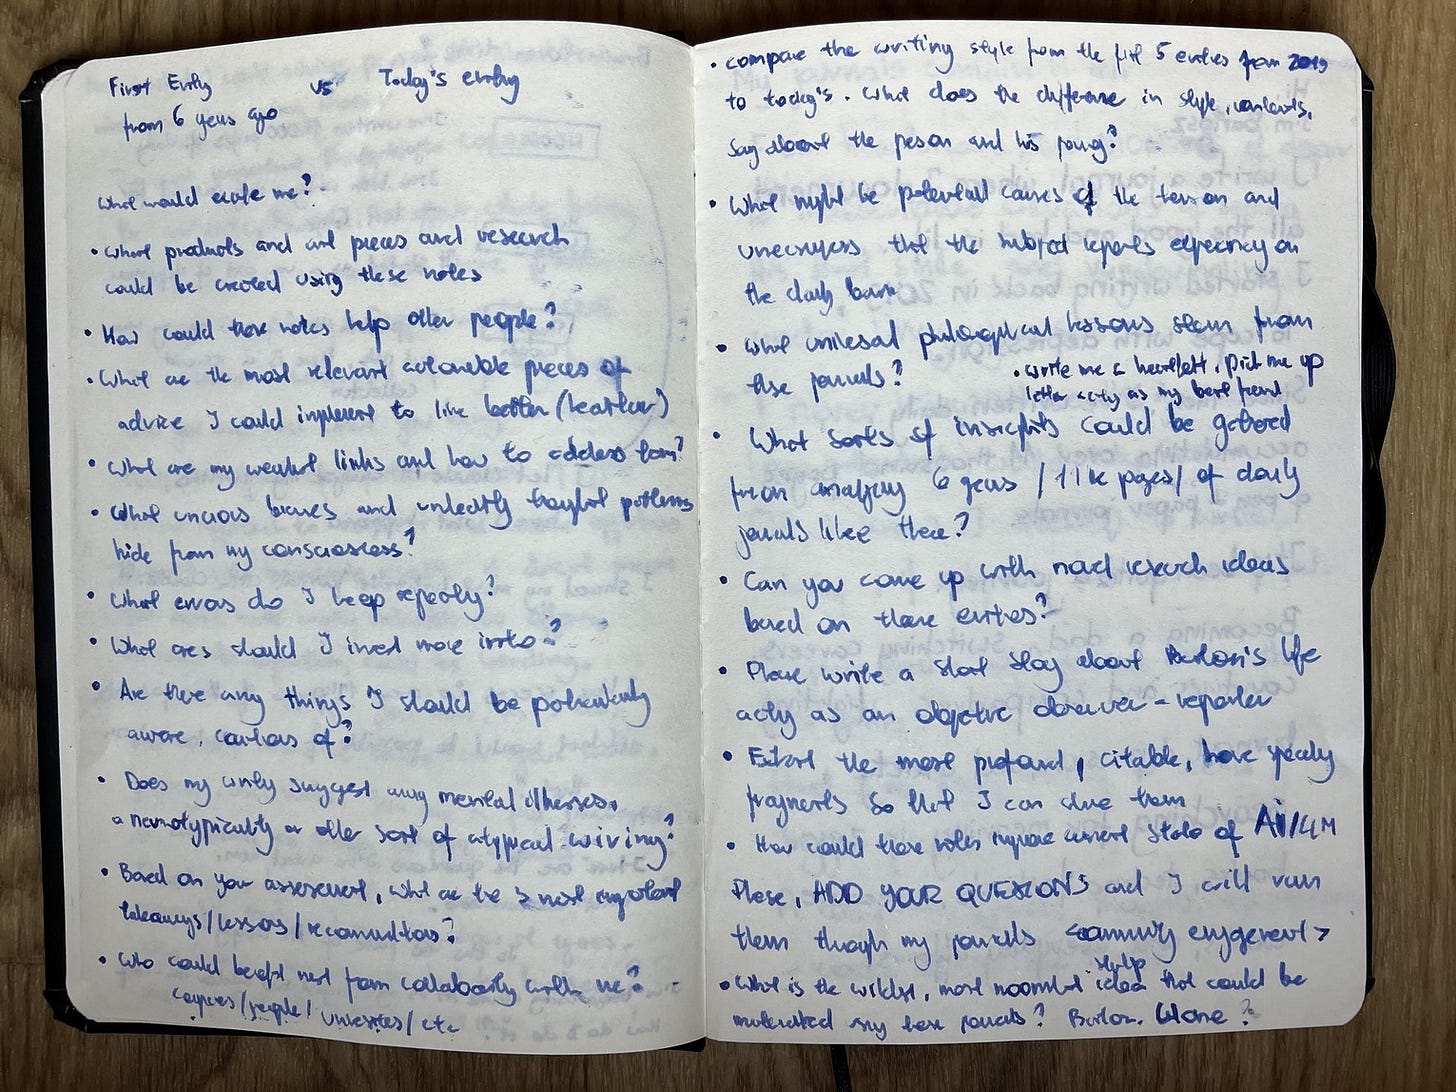 First Entry vs Today's entry
from 6 years ago
What would excite me?
• What products and art pieces and research
could be created using these notes
• How could these notes help other people?
• What are the most relevant actionable pieces of
advice I could implement to live better (healthier)
• What are my weakest links and how to address them?
• What biases and thought patterns
hide from my consciousness?
• What errors do I keep repeating?
• What areas should I invest more into?
• Are there any things I should be particularly
aware, cautious of?
• Does my writing suggest any mental illnesses,
a neurotypicality or other sort of atypical wiring?
• Based on your assessment, what are the 3 most important
takeaways/lessons/recommendations?
• Who could benefit most from collaborating with me?
companies/people/universities/etc
• compare the writing style from the first 5 entries from 2019
to today's. What does the difference in style, contents,
say about the person and his journey?
• What might be potential causes of the tension and
uneasiness that the subject reports experiencing on
the daily basis
• What universal philosophical lessons stem from
these journals?
• write me a heartfelt, pick me up
letter acting as my best friend
• What sorts of insights could be gathered
from analyzing 6 years /11k pages/ of daily
journals like these?
• Can you come up with novel research ideas
based on these entries?
• Please write a short story about Barton's life
acting as an objective observer-reporter
• Extract the most profound, citable,
fragments so that I can share them
• How could these notes improve current state of Ai/LLM
Please, ADD YOUR QUESTIONS and I will run
them through my journals <community engagement>
• What is the wildest, most moonshot startup idea that could be
using these journals? Clone?